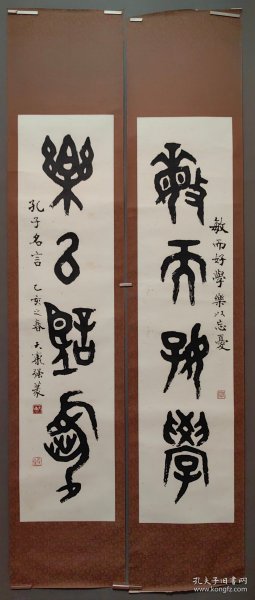 敏而好學樂以忘憂
敏而好學
樂以忘憂
孔子名言 乙亥之春
孔夫子旧书网
www.kongfz.com